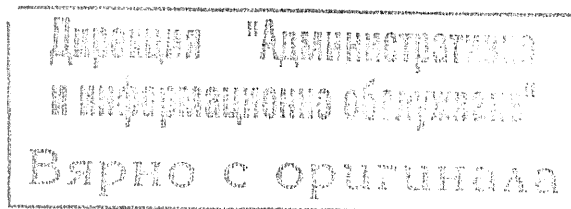 Дирекция "Административно
и информационно обслужване"
Вярно с оригинала